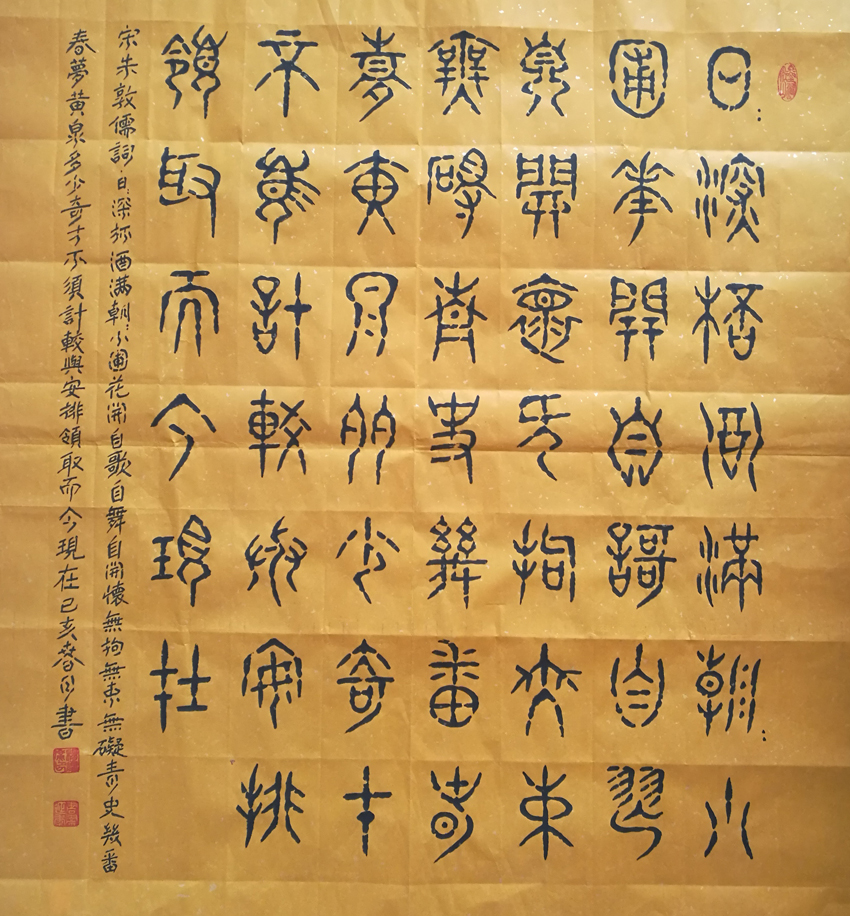 日:深桮酒滿朝:小
圃華開自謌自舞
自開懷無拘無束
無礙青史幾番春
夢黃泉多少奇才
不須計較與安排
領取而今現在
宋朱敦儒詞日:深杯酒滿朝:小圃花開自歌自舞自開懷無拘無束無礙青史幾番
春夢黃泉多少奇才不須計較與安排領取而今現在己亥春月書